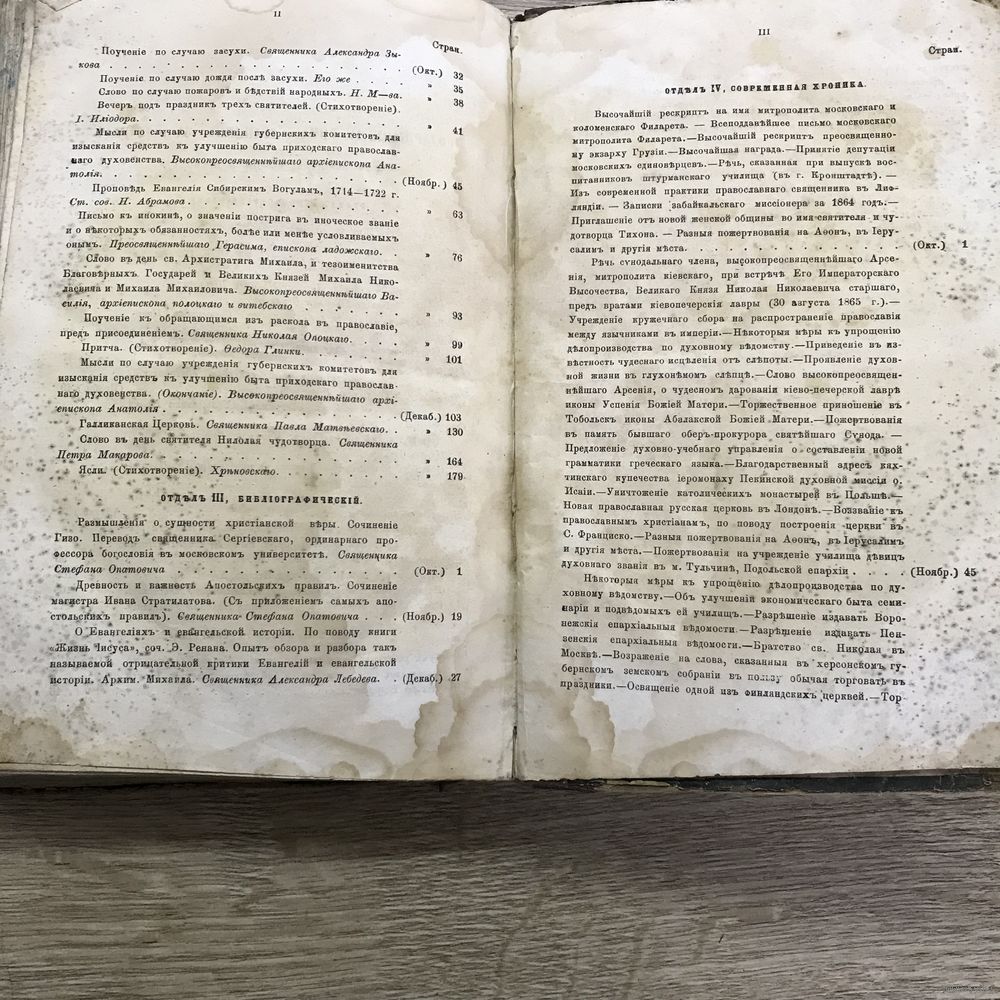 II
Стран.
Поученіе по случаю засухи. Священника Александра Зы-
кова . . . . . . . . . . . . . . . . . . (Окт.) 32
Поученіе по случаю дождя послѣ засухи. Его же . . . . . » 35
Слово по случаю пожаров и бѣдствій народныхъ. Н. М—ва. » 38
Вечеръ подъ праздник трехъ святителей. (Стихотвореніе).
І. Иліодора. . . . . . . . . . . . . . . . . » 41
Мысли по случаю учрежденія губернскихъ комитетовъ для
изысканія средствъ къ улучшенію быта приходскаго православ-
наго духовенства. Высокопреосвященнѣйшаго архіепископа Ана-
толія. . . . . . . . . . . . . . . . . . (Ноябр.) 45
Проповѣдь Евангелія Сибирскимъ Вогуламъ, 1714—1722 г.
Ст. сов. Н. Абрамова . . . . . . . . . . . . . » 63
Письмо къ инокинѣ, о значеніи пострига въ иноческое званіе
и о нѣкоторыхъ обязанностяхъ, болѣе или менѣе условливаемыхъ
онымъ. Преосвященнѣйшаго Герасима, епископа ладожскаго. . » 76
Слово въ день св. Архистратига Михаила, и тезоименитства
Благовѣрныхъ Государей и Великихъ Князей Михаила Нико-
лаевича и Михаила Михаиловича. Высокопреосвященнѣйшаго Ва-
силія, архіепископа полоцкаго и витебскаго . . . . . . » 93
Поученіе къ обращающимся изъ раскола въ православіе,
предъ присоединеніемъ. Священника Николая Опоцкаго. . . . » 99
Притча. (Стихотвореніе). Ѳедора Глинки. . . . . . . » 101
Мысли по случаю учрежденія губернскихъ комитетовъ для
изысканія средствъ къ улучшенію быта приходскаго православ-
наго духовенства. (Окончаніе). Высокопреосвященнѣйшаго архі-
епископа Анатолія . . . . . . . . . . . . . (Декаб.) 103
Галликанская Церковь. Священника Павла Матвѣевскаго. . » 130
Слово въ день святителя Николая чудотворца. Священника
Петра Макарова. . . . . . . . . . . . . . . » 164
Ясли. (Стихотвореніе). Хрѣновскаго. . . . . . . . » 179
ОТДѢЛЪ III, БИБЛІОГРАФИЧЕСКІЙ.
Размышленія о сущности христіанской вѣры. Сочиненіе
Гизо. Переводъ священника Сергіевскаго, ординарнаго про-
фессора богословія въ московскомъ университетѣ. Священника
Стефана Опатовича . . . . . . . . . . . . . (Окт.) 1
Древность и важность Апостольскихъ правилъ. Сочиненіе
магистра Ивана Стратилатова. (Съ приложеніемъ самыхъ апо-
стольскихъ правилъ). Священника Стефана Опатовича . . . (Ноябр.) 19
О Евангеліяхъ и евангельской исторіи. По поводу книги
«Жизнь Іисуса», соч. Э. Ренана. Опытъ обзора и разбора такъ
называемой отрицательной критики Евангелій и евангельской
исторіи. Архим. Михаила. Священника Александра Лебедева. . (Декаб.) 27
III
Стран.
ОТДѢЛЪ IV, СОВРЕМЕННАЯ ХРОНИКА.
Высочайшій рескриптъ на имя митрополита московскаго и
коломенскаго Филарета. — Всеподданѣйшее письмо московскаго
митрополита Филарета.—Высочайшій рескриптъ преосвященно-
му экзарху Грузіи.—Высочайшая награда.—Принятіе депутаціи
московскихъ единовѣрцевъ.—Рѣчь, сказанная при выпускѣ вос-
питанниковъ штурманскаго училища (въ г. Кронштадтѣ). —
Изъ современной практики православнаго священника въ Лиф-
ляндіи. — Записки забайкальскаго миссіонера за 1864 годъ.—
Приглашеніе отъ новой женской общины во имя святителя и чу-
дотворца Тихона. — Разныя пожертвованія на Аѳонъ, въ Іеру-
салимъ и другія мѣста. . . . . . . . . . . . . (Окт.) 1
Рѣчь сѵнодальнаго члена, высокопреосвященнѣйшаго Арсе-
нія, митрополита кіевскаго, при встрѣчѣ Его Императорскаго
Высочества, Великаго Князя Николая Николаевича старшаго,
предъ вратами кіевопечерскія лавры (30 августа 1865 г.).—
Учрежденіе кружечнаго сбора на распространеніе православія
между язычниками въ имперіи.—Нѣкоторыя мѣры къ упрощенію
дѣлопроизводства по духовному вѣдомству.—Приведеніе въ из-
вѣстность чудеснаго исцѣленія отъ слѣпоты.—Проявленіе духов-
ной жизни въ глухонѣмомъ слѣпцѣ.—Слово высокопреосвящен-
нѣйшаго Арсенія, о чудесномъ дарованіи кіево-печерской лаврѣ
иконы Успенія Божіей Матери.—Торжественное приношеніе въ
Тобольскъ иконы Абалакской Божіей Матери.—Пожертвованія
въ память бывшаго оберъ-прокурора святѣйшаго Сѵнода. —
Предложеніе духовно-учебнаго управленія о составленіи новой
грамматики греческаго языка.—Благодарственный адресъ кях-
тинскаго купечества іеромонаху Пекинской духовной миссіи о.
Исаіи.—Уничтоженіе католическихъ монастырей въ Польшѣ.—
Новая православная русская церковь въ Лондонѣ.—Воззваніе къ
православнымъ христіанамъ, по поводу построенія церкви въ
С. Франциско.—Разныя пожертвованія на Аѳонъ, въ Іерусалимъ
и другія мѣста.—Пожертвованія на учрежденіе училища дѣвицъ
духовнаго званія въ м. Тульчинѣ, Подольской епархіи . . . . (Ноябр.) 45
Нѣкоторыя мѣры къ упрощенію дѣлопроизводства по ду-
ховному вѣдомству.—Объ улучшеніи экономическаго быта семи-
наріи и подвѣдомыхъ ей училищъ.—Разрѣшеніе издавать Воро-
нежскія епархіальныя вѣдомости.—Разрѣшеніе издавать Пен-
зенскія епархіальныя вѣдомости.—Братство св. Николая въ
Москвѣ.—Возраженіе на слова, сказанныя въ херсонскомъ гу-
бернскомъ земскомъ собраніи въ пользу обычая торговать въ
праздники.—Освященіе одной изъ финландскихъ церквей.—Тор-